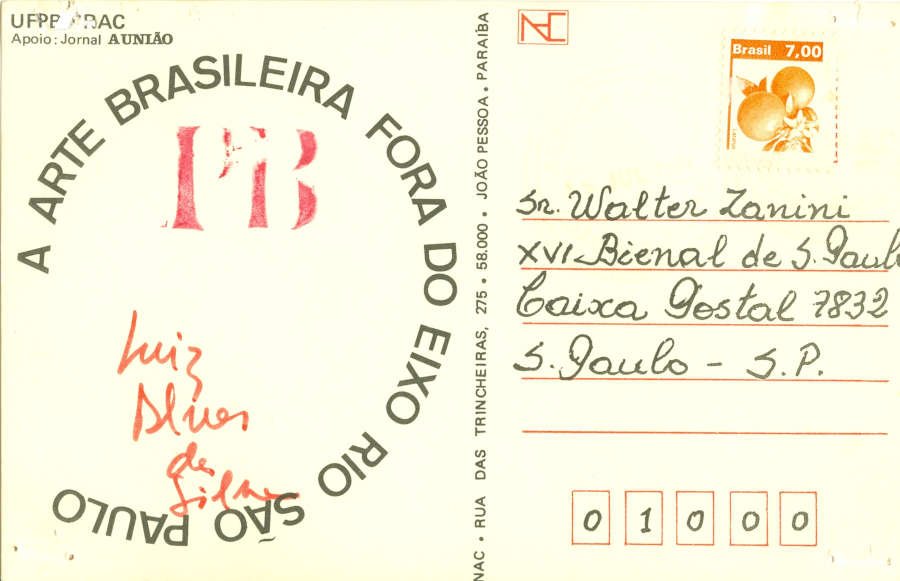 UFPB PRAC
Apoio: Jornal A UNIÃO
A ARTE BRASILEIRA FORA DO EIXO RIO SÃO PAULO
PB
Luiz
Alves
da
Silva
NAC • RUA DAS TRINCHEIRAS, 275 • 58.000 • JOÃO PESSOA • PARAÍBA
NAC
Brasil 7,00
Sr. Walter Zanini
XVI Bienal de S. Paulo
Caixa Postal 7832
S. Paulo - S.P.
0 1 0 0 0